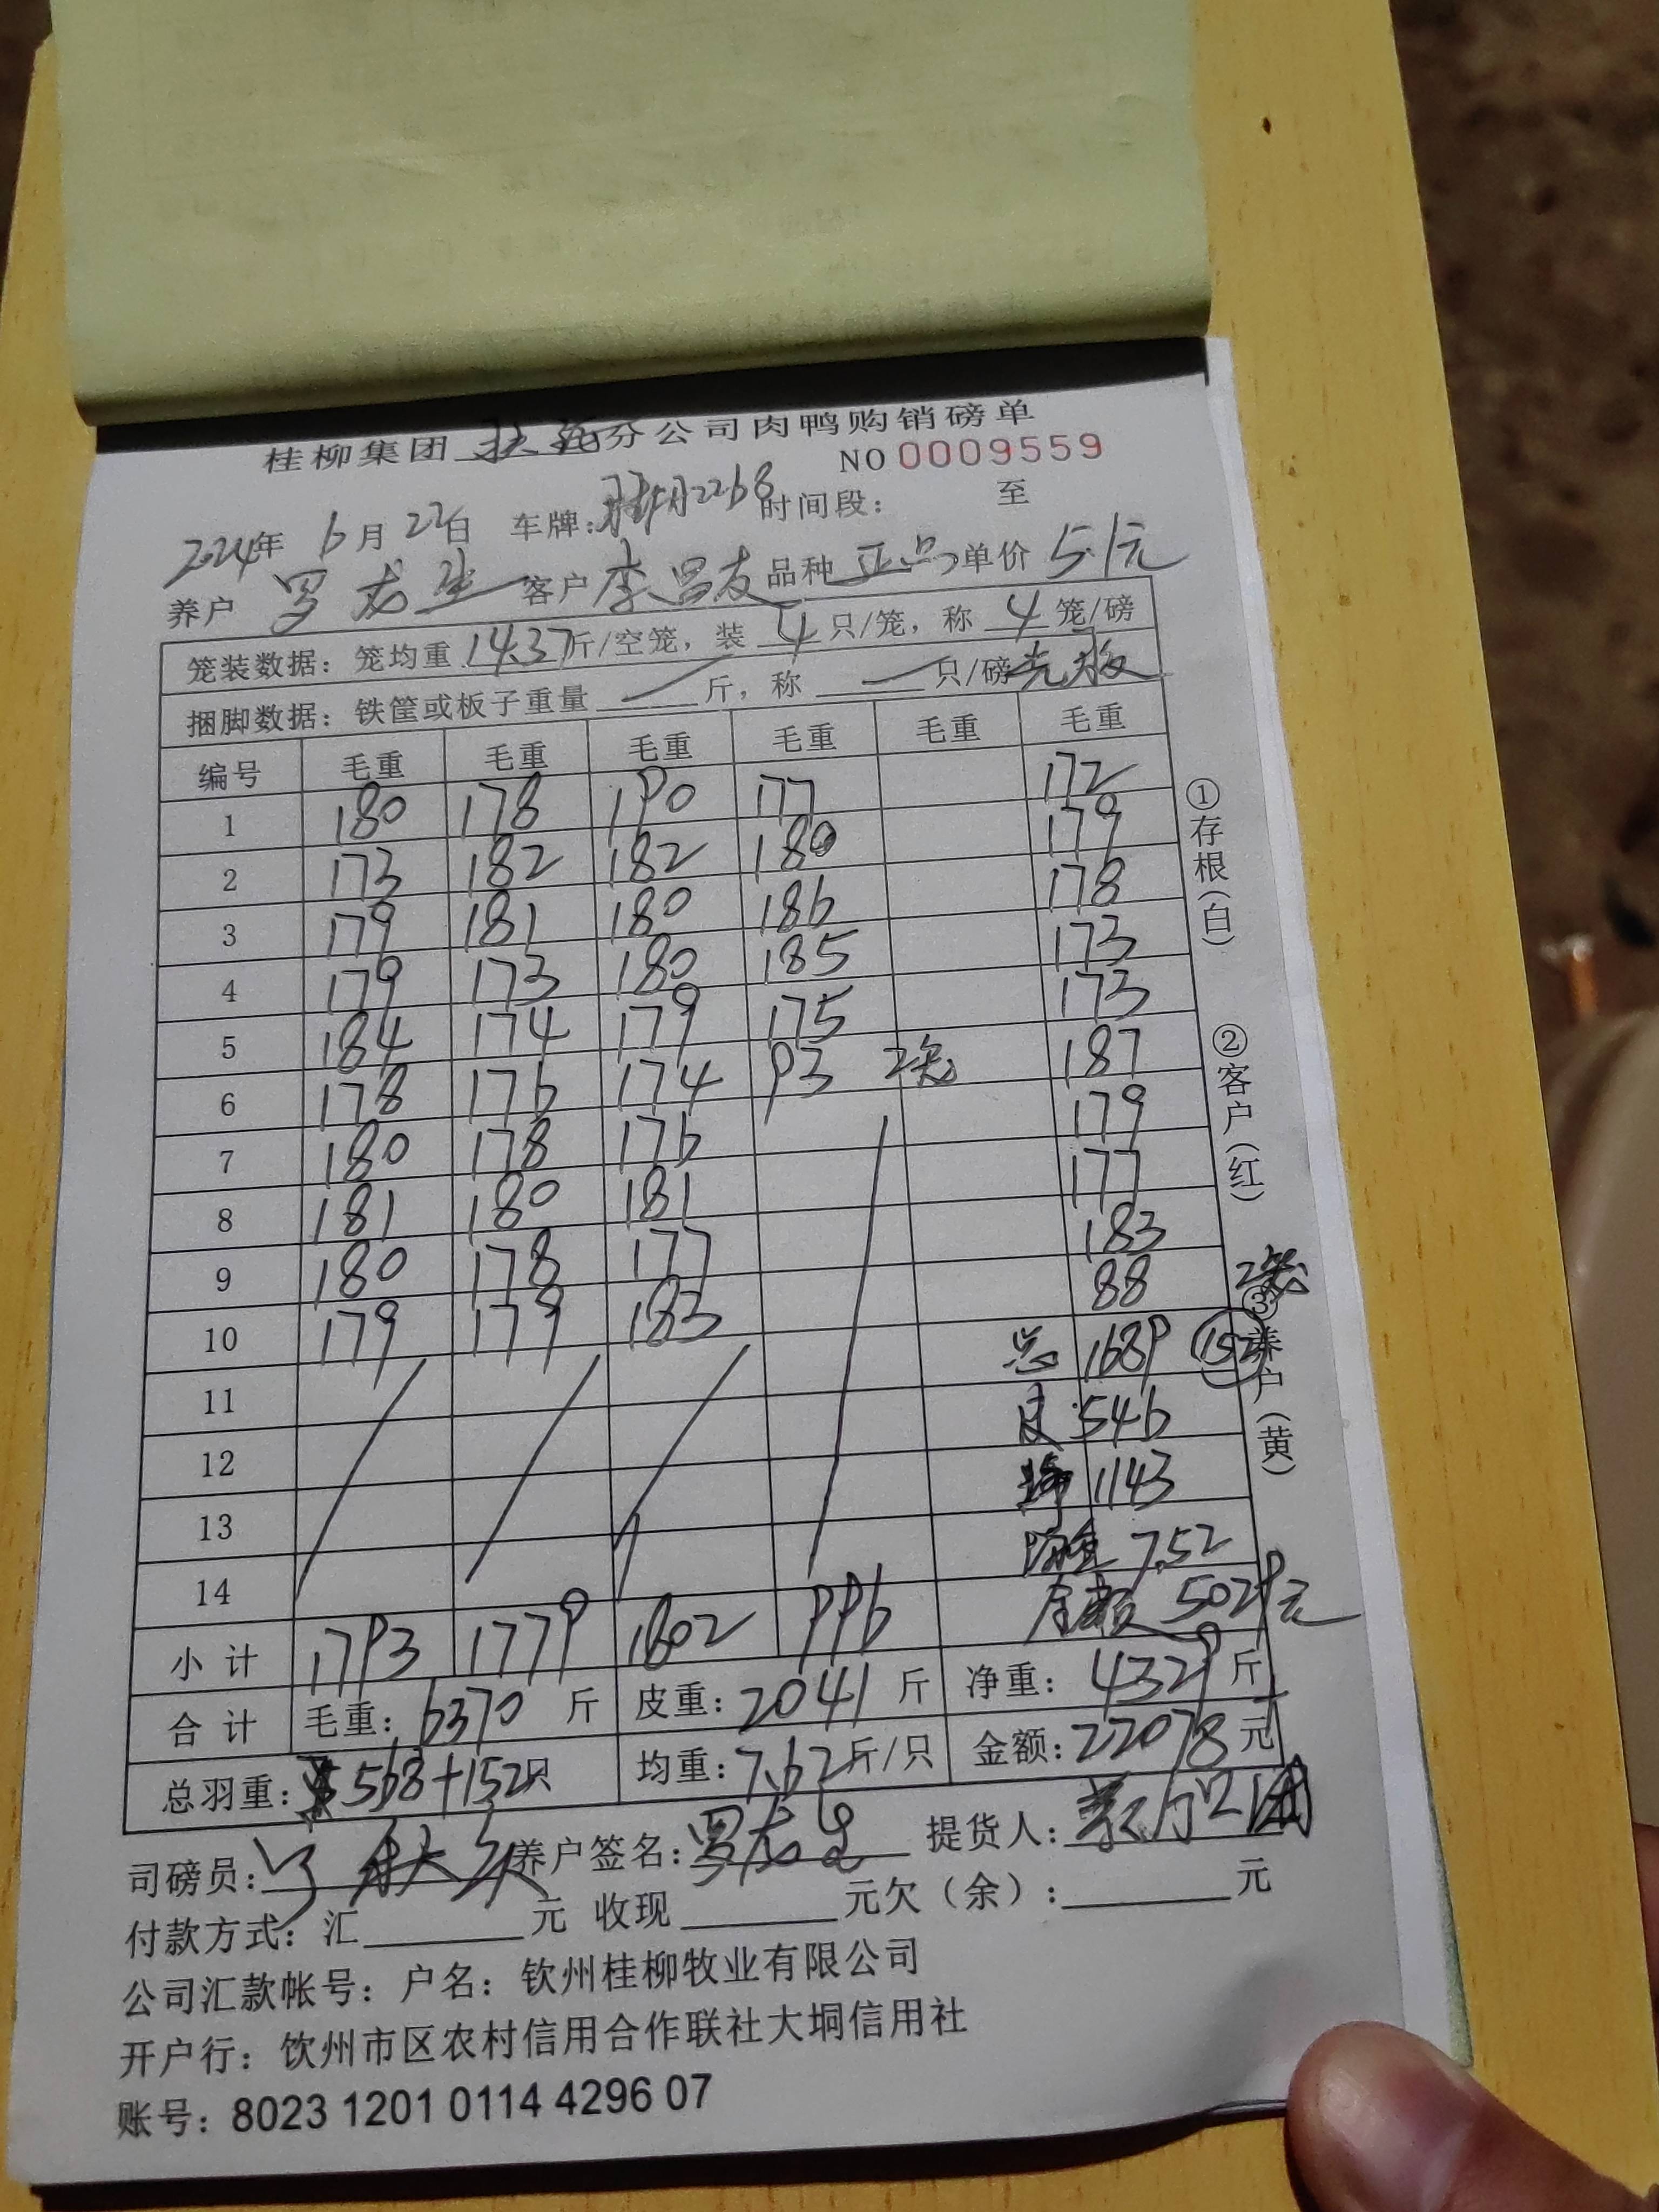 桂柳集团 分公司肉鸭购销磅单
NO 0009559
2024年 6月 22日 车牌: 2268 时间段: 至
养户 罗龙生 客户 李昌友 品种 正品 单价 5.1元
笼装数据: 笼均重 14.37斤/空笼, 装 4 只/笼, 称 4 笼/磅
捆脚数据: 铁筐或板子重量 — 斤, 称 — 只/磅 光板
编号 毛重 毛重 毛重 毛重 毛重 毛重
1 180 178 190 177 172
2 173 182 182 180 179
3 179 181 180 186 178
4 179 173 180 185 173
5 184 174 179 175 173
6 178 176 174 93 2笼 187
7 180 178 176 179
8 181 180 181 177
9 180 178 177 183
10 179 179 183 88 2笼
11 总 1689 152
12 皮 546
13 净 1143
14 均重 7.52
金额 5029元
小计 1793 1779 1802 996
合计 毛重: 6370 斤 皮重: 2041 斤 净重: 4329 斤
总羽重: 568+152只 均重: 7.62斤/只 金额: 22078元
司磅员: 养户签名: 罗龙生 提货人:
付款方式: 汇 元 收现 元欠(余): 元
公司汇款帐号: 户名: 钦州桂柳牧业有限公司
开户行: 钦州市区农村信用合作联社大垌信用社
账号: 8023 1201 0114 4296 07
①存根(白) ②客户(红) ③养户(黄)